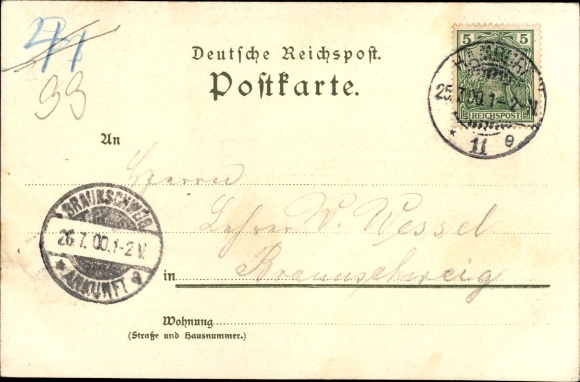 5 5
REICHSPOST
HAMBURG
25.7.00.1-2V.
* 11 e
33
Deutsche Reichspost.
Postkarte.
An
Herrn
Lehrer W. Wessel
in Braunschweig
BRAUNSCHWEIG
26.7.00.1-2V.
* ANKUNFT
Wohnung
(Straße und Hausnummer.)